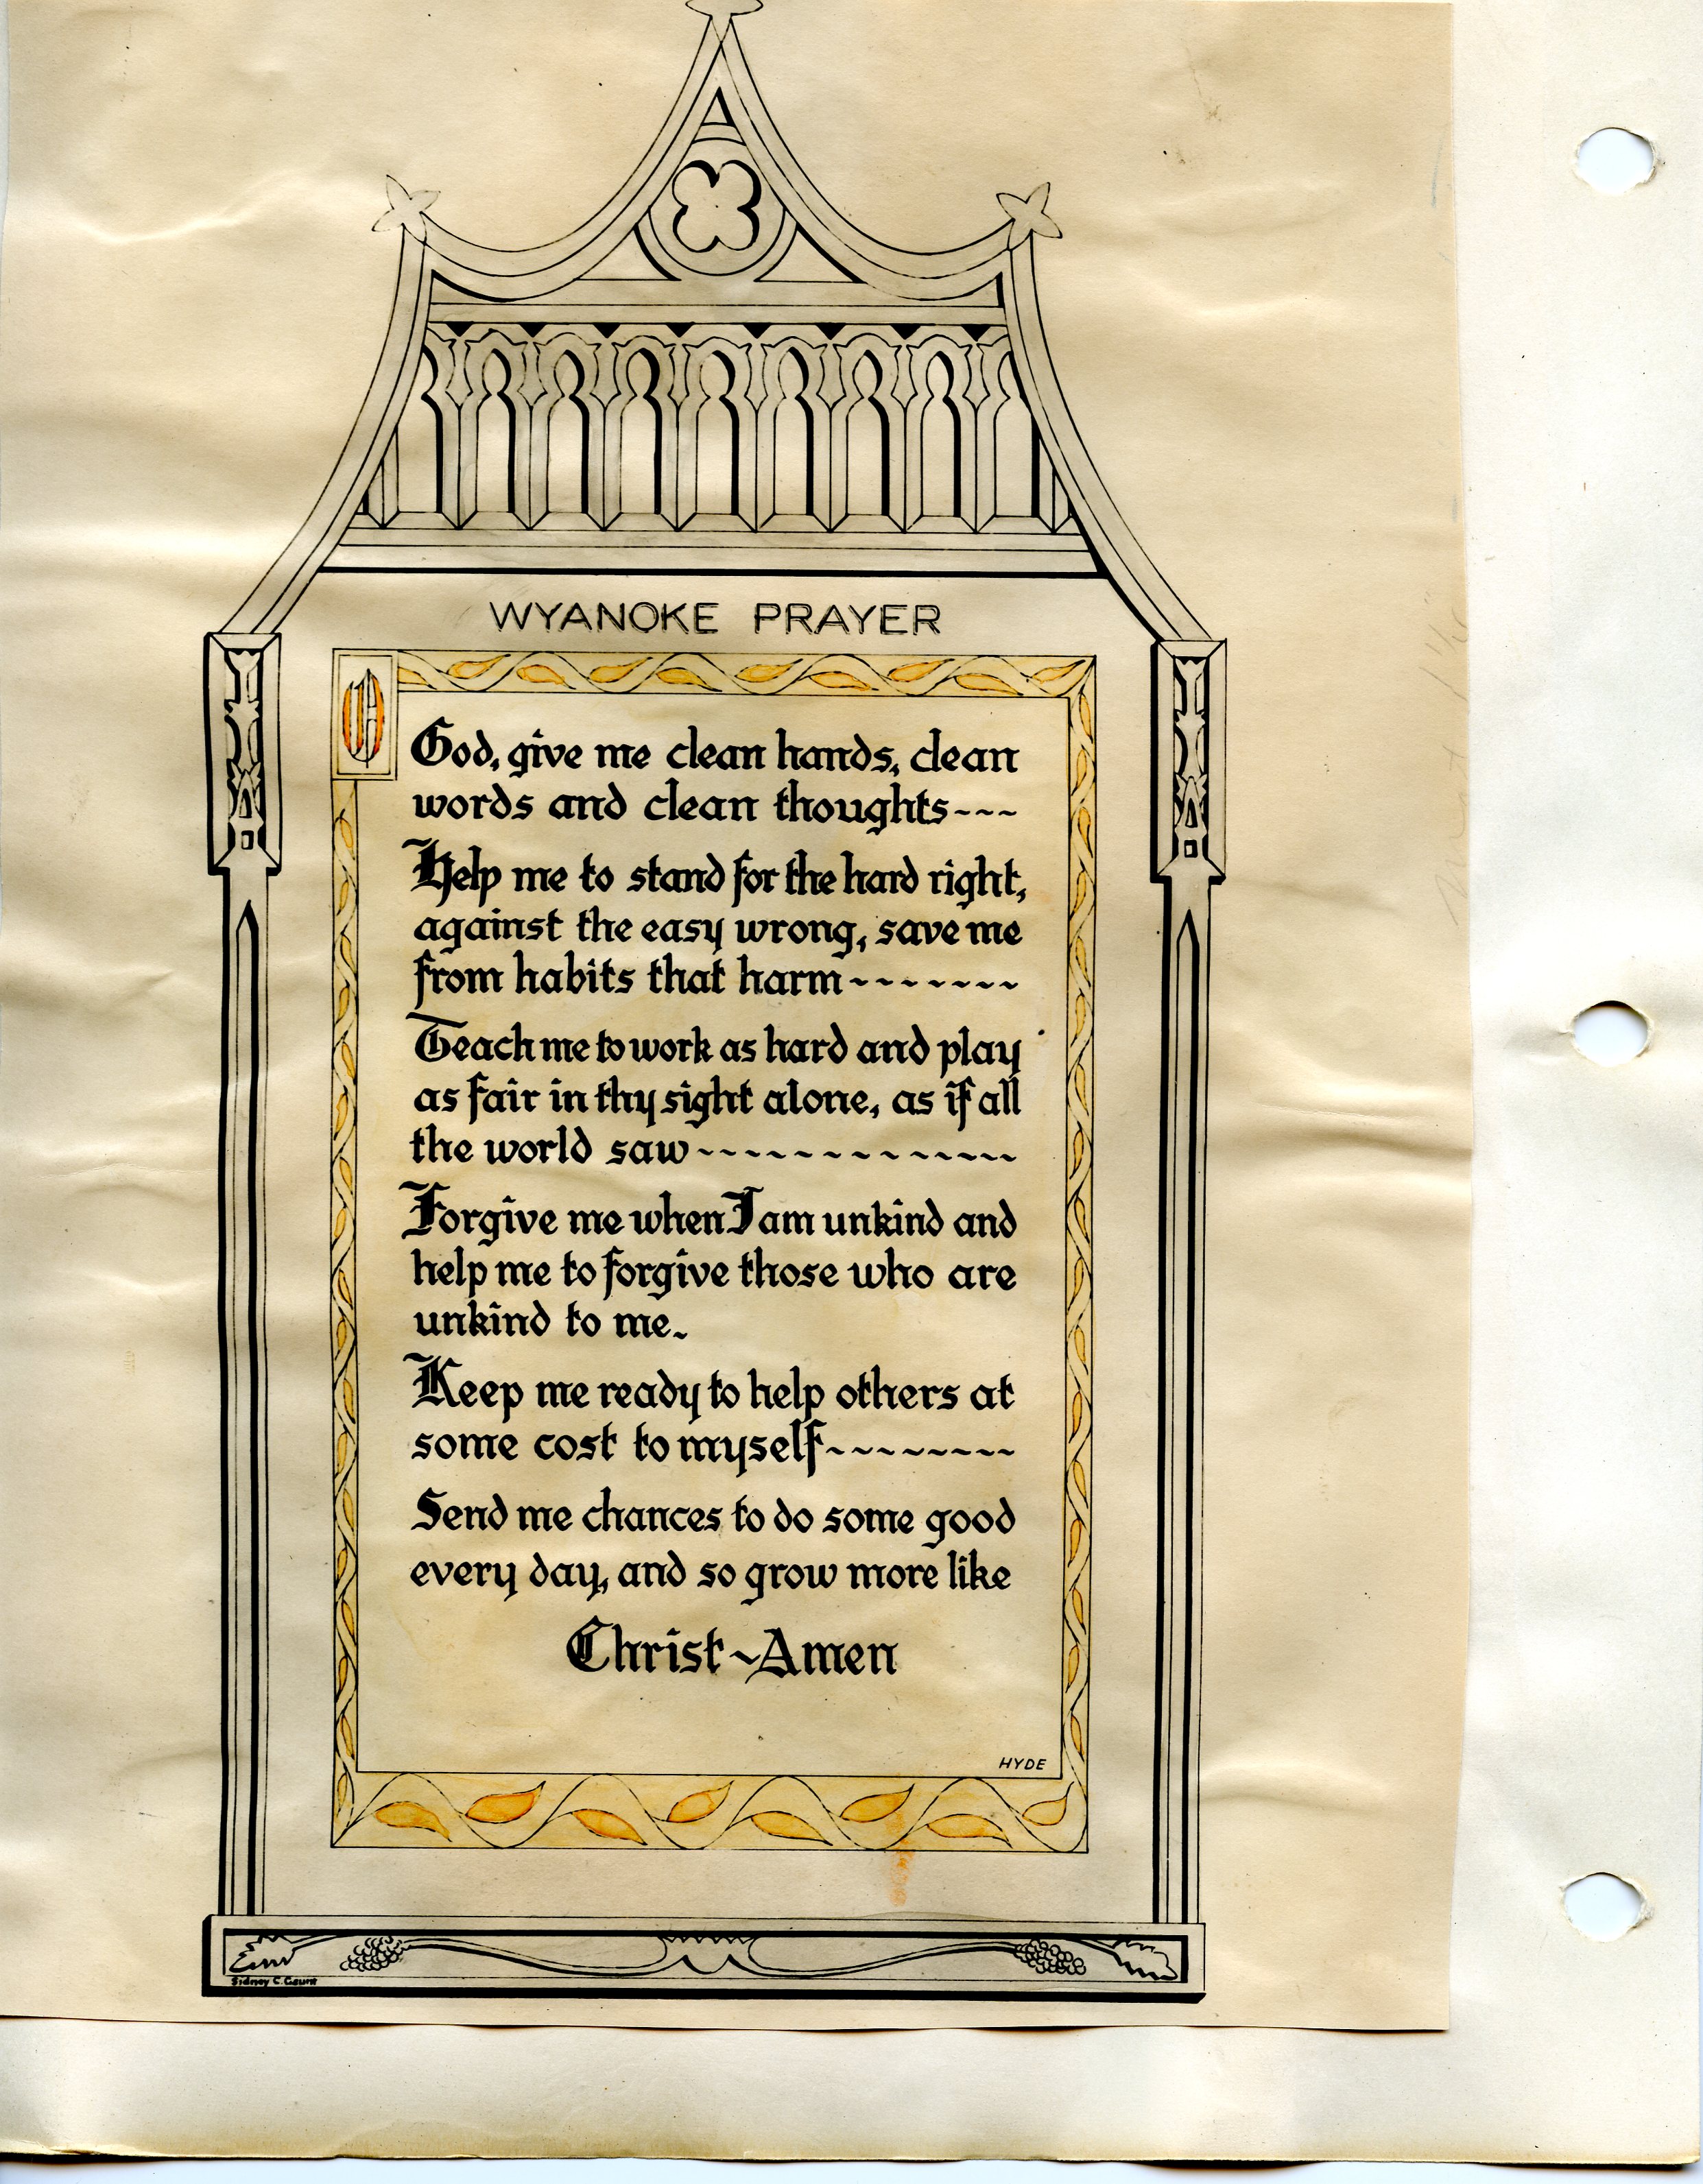 WYANOKE PRAYER
O God, give me clean hands, clean
words and clean thoughts---
Help me to stand for the hard right,
against the easy wrong, save me
from habits that harm-------
Teach me to work as hard and play
as fair in thy sight alone, as if all
the world saw--------------
Forgive me when I am unkind and
help me to forgive those who are
unkind to me.
Keep me ready to help others at
some cost to myself--------
Send me chances to do some good
every day, and so grow more like
Christ~Amen
HYDE
Sidney C.